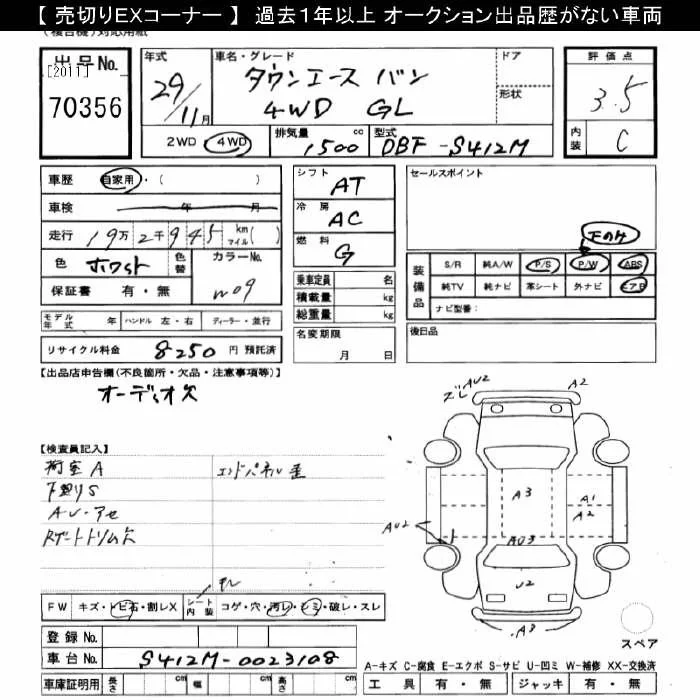 【 売切りEXコーナー 】 過去１年以上 オークション出品歴がない車両
出品No.
[2011]
70356
年式
29/11月
車名・グレード
タウンエース バン
4WD GL
ドア
形状
評価点
3.5
内装
C
2WD 4WD
排気量 1500 cc
型式 DBF-S412M
車歴 自家用・( )
車検 年 月
走行 19万2千945 km マイル( )
色 ホワイト 色替
カラーNo. W09
保証書 有・無
シフト AT
冷房 AC
燃料 G
乗車定員 名
積載量 kg
総重量 kg
セールスポイント
下のみ
装備品
S/R 純A/W P/S P/W ABS
純TV 純ナビ 革シート 外ナビ エアB
ナビ型番：
モデル年式 年 ハンドル 左・右 ディーラー・並行
リサイクル料金 8250 円 預託済
名変期限 月 日
後日品
【出品店申告欄(不良箇所・欠品・注意事項等)】
オーディオ欠
【検査員記入】
荷室A エンドパネル歪
下廻りS
AU・アセ
Rゲートトリム欠
ズレ AU2 A2
A3 A1
A2
AU2
AU3
U2
A3
スペア
FW キズ・トビ石・割レX
シート内装 コゲ・穴・汚レ・シミ・破レ・スレ
登録No.
車台No. S412M-0023108
車庫証明用 長さ 幅 高さ
A-キズ C-腐食 E-エクボ S-サビ U-凹ミ W-補修 XX-交換済
工具 有・無 ジャッキ 有・無